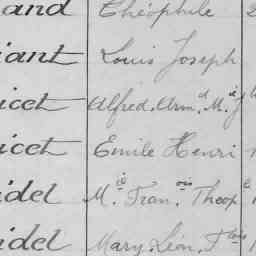 and Théophile 2
iant Louis Joseph
icet Alfred. Arm.d M.ie J
icet Emile Henri
idel M.ie Fran.ois Theop
idel Mary. Léon. F.çois